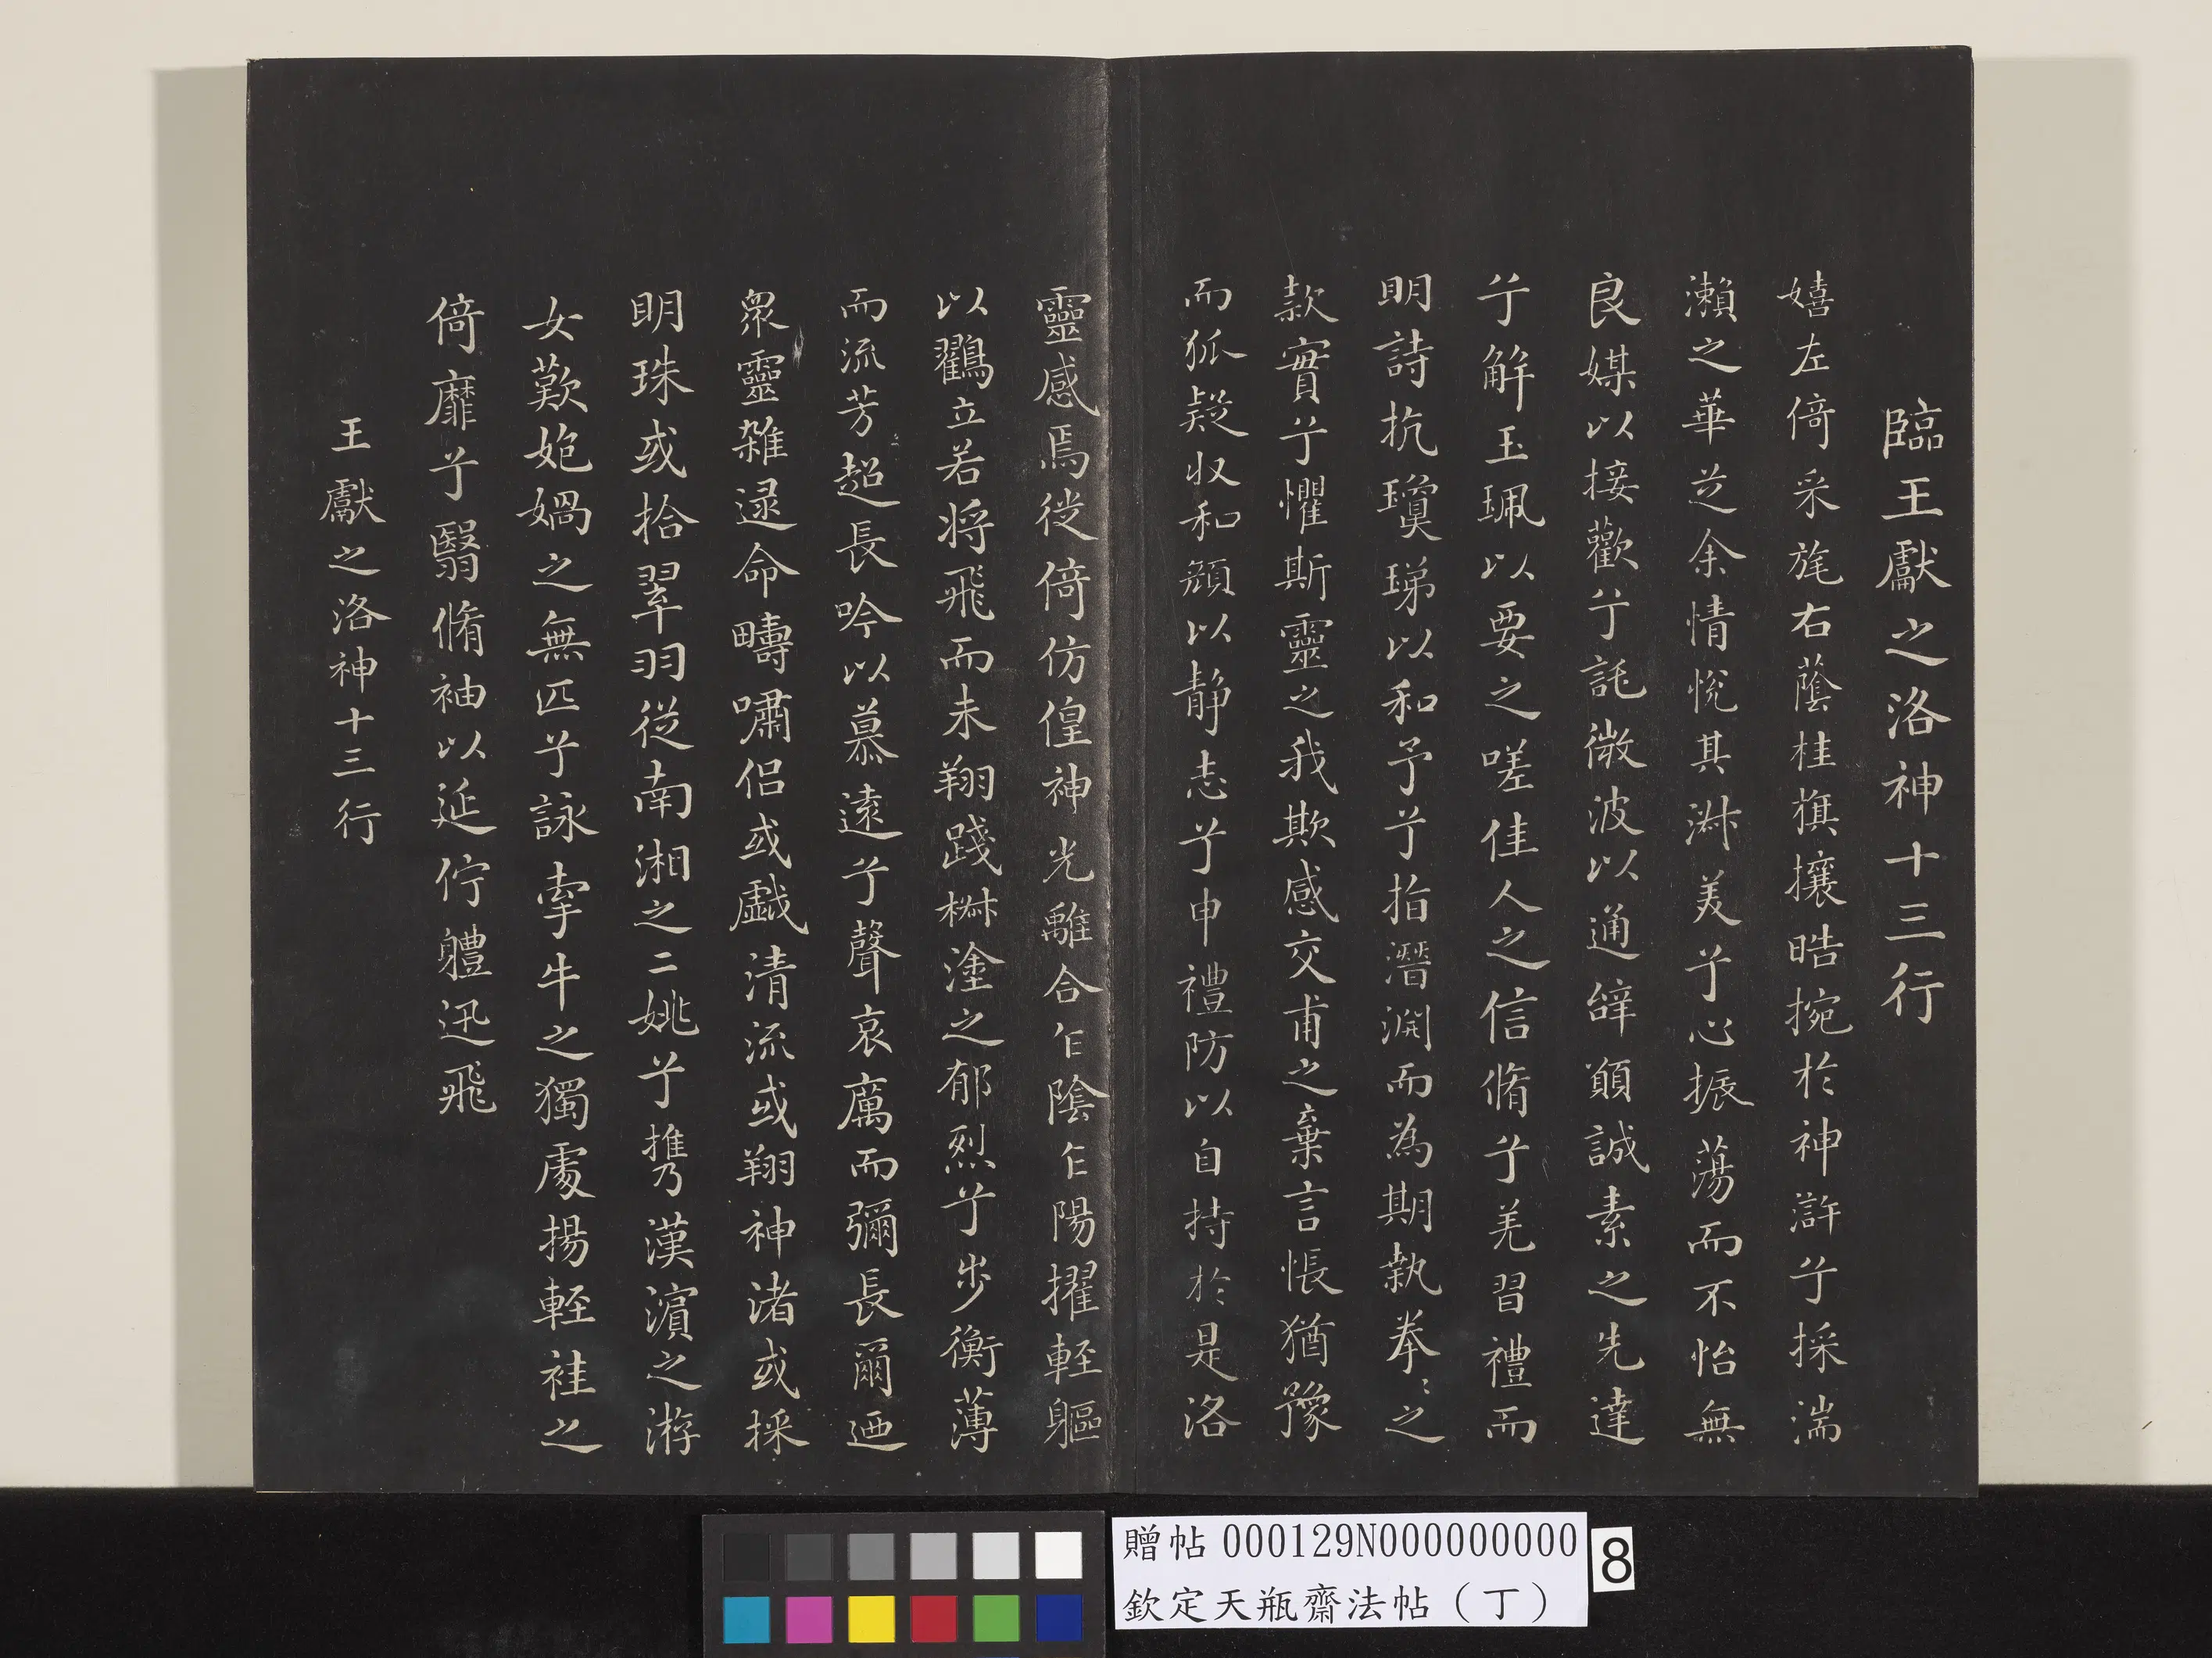 臨王獻之洛神十三行
嬉左倚采旄右蔭桂旗攘皓捥於神滸兮採湍
瀨之華芝余情悅其淋美兮心振蕩而不怡無
良媒以接歡兮託微波以通辭願誠素之先達
兮解玉珮以要之嗟佳人之信脩兮羌習禮而
明詩抗瓊珶以和予兮指潛淵而為期執拳〻之
款實兮懼斯靈之我欺感交甫之棄言悵猶豫
而狐疑収和顏以静志兮申禮防以自持於是洛
靈感焉徙倚仿偟神光離合乍陰乍陽擢輊軀
以鸖立若将飛而未翔踐椒塗之郁烈兮步衡薄
而流芳超長吟以慕遠兮聲哀厲而彌長爾迺
衆靈雜遝命疇嘯侶或戲清流或翔神渚或採
明珠或拾翠羽従南湘之二姚兮携漢濱之游
女歎匏媧之無匹兮詠牽牛之獨處揚輊袿之
倚靡兮翳脩袖以延佇軆迅飛
王獻之洛神十三行
贈帖 000129N000000000
欽定天瓶齋法帖（丁）
8